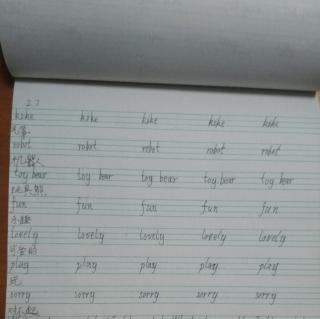 2.7
kike kike kike kike kike
robot robot robot robot robot
机器人
toy bear toy bear toy bear toy bear toy bear
玩具熊
fun fun fun fun fun
乐趣
lovely lovely lovely lovely lovely
可爱的
play play play play play
玩
sorry sorry sorry sorry sorry
对不起